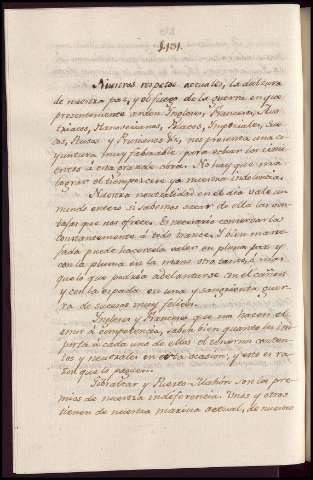 §.131.
Nuestros respetos actuales, la dulzura
de nuestra paz, y el fuego de la guerra en que
presentemente arden Ingleses, Franceses, Aus-
triacos, Hanoverianos, Polacos, Imperiales, Sue-
cos, Rusos y Prusianos &c. nos presenta una co-
yuntura muy favorable para echar los cimi-
entos á esta grande obra. No hay que ma-
lograr el tiempo: cese ya nuestra indolencia.
Nuestra neutralidad en el dia vale un
mundo entero si sabemos sacar de ella las ven-
tajas que nos ofrece. Es necesario conservarla
constantemente á todo trance. Y bien mane-
jada puede hacerla valer en plena paz y
con la pluma en la mano otro tanto, ó mas
que lo que podria adelantarse con el cañon
y con la espada en una y sangrienta guer-
ra de sucesos muy felices.
Ingleses y Franceses que nos hacen el
amor á competencia, saben bien quanto les im-
porta á cada uno de ellos el tenernos conten-
tos y neutrales en esta ocasion; y esto es ra-
zon que lo paguen.
Gibraltar y Puerto-Mahón son los pre-
mios de nuestra indiferencia. Unos y otros
tienen de nuestra marina actual, de nuestro